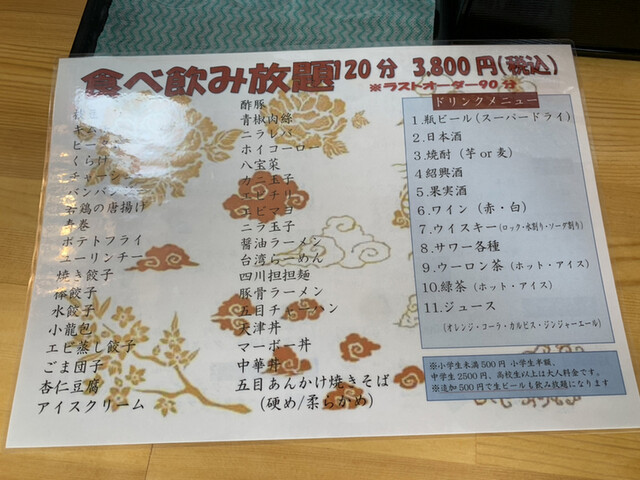 食べ飲み放題120分 3,800円(税込)
※ラストオーダー90分
くらげ
チャーシュー
バンバンジー
若鶏の唐揚げ
春巻
ポテトフライ
ユーリンチー
焼き餃子
棒餃子
水餃子
小龍包
エビ蒸し餃子
ごま団子
杏仁豆腐
アイスクリーム
酢豚
青椒肉絲
ニラレバ
ホイコーロー
八宝菜
カニ玉子
エビチリ
エビマヨ
ニラ玉子
醤油ラーメン
台湾らーめん
四川担担麺
豚骨ラーメン
五目チャーハン
天津丼
マーボー丼
中華丼
五目あんかけ焼きそば
(硬め/柔らかめ)
ドリンクメニュー
1.瓶ビール(スーパードライ)
2.日本酒
3.焼酎(芋 or 麦)
4紹興酒
5.果実酒
6.ワイン(赤・白)
7.ウイスキー(ロック・水割り・ソーダ割り)
8.サワー各種
9.ウーロン茶(ホット・アイス)
10.緑茶(ホット・アイス)
11.ジュース
(オレンジ・コーラ・カルピス・ジンジャーエール)
※小学生未満500円 小学生半額、
中学生2500円、高校生以上は大人料金です。
※追加500円で生ビールも飲み放題になります